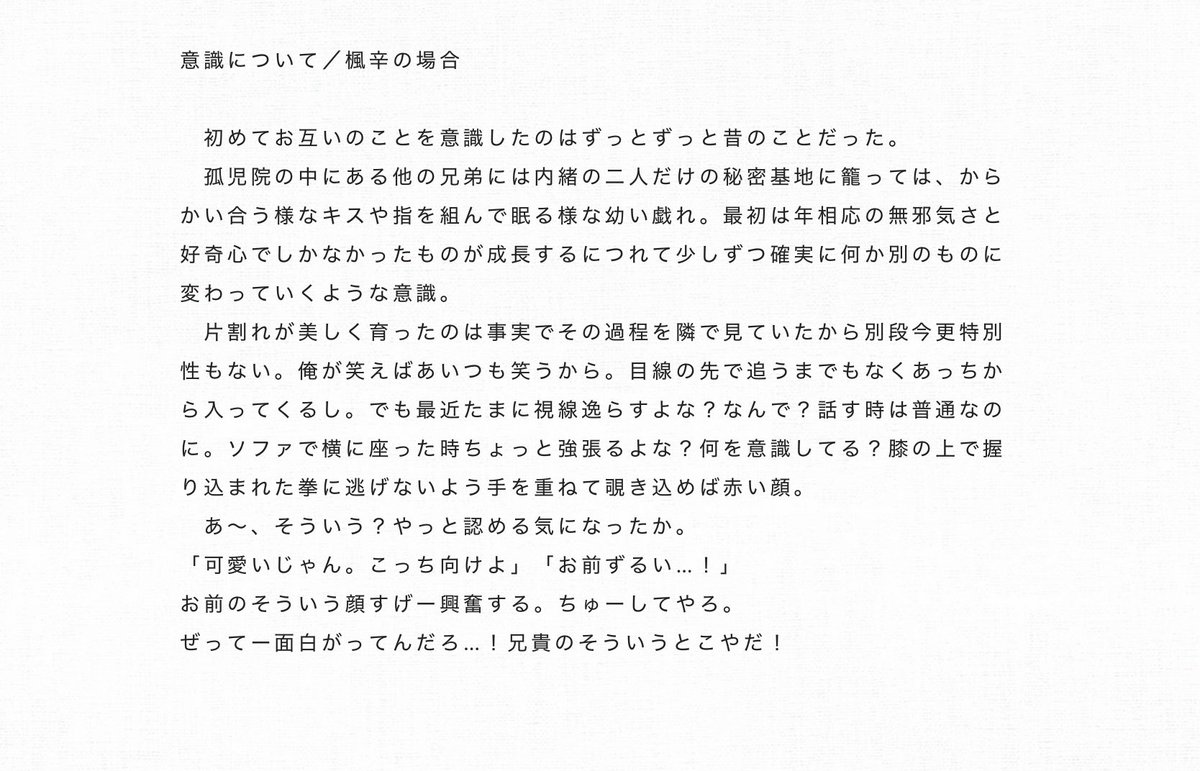 意識について／楓辛の場合
　初めてお互いのことを意識したのはずっとずっと昔のことだった。
　孤児院の中にある他の兄弟には内緒の二人だけの秘密基地に籠っては、から
かい合う様なキスや指を組んで眠る様な幼い戯れ。最初は年相応の無邪気さと
好奇心でしかなかったものが成長するにつれて少しずつ確実に何か別のものに
変わっていくような意識。
　片割れが美しく育ったのは事実でその過程を隣で見ていたから別段今更特別
性もない。俺が笑えばあいつも笑うから。目線の先で追うまでもなくあっちか
ら入ってくるし。でも最近たまに視線逸らすよな？なんで？話す時は普通なの
に。ソファで横に座った時ちょっと強張るよな？何を意識してる？膝の上で握
り込まれた拳に逃げないよう手を重ねて覗き込めば赤い顔。
　あ〜、そういう？やっと認める気になったか。
「可愛いじゃん。こっち向けよ」「お前ずるい…！」
お前のそういう顔すげー興奮する。ちゅーしてやろ。
ぜってー面白がってんだろ…！兄貴のそういうとこやだ！